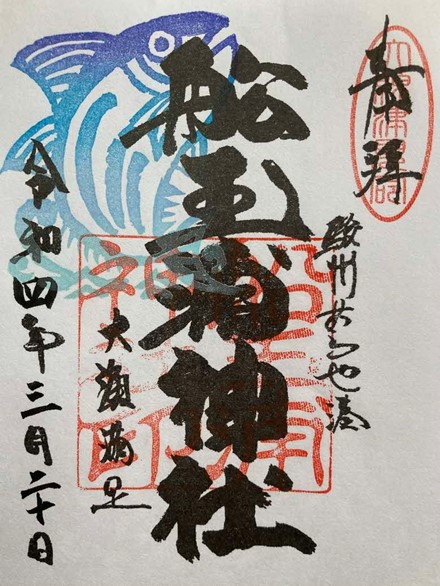 奉拝
駿州
船玉浦神社
大漁満足
令和四年三月二十日